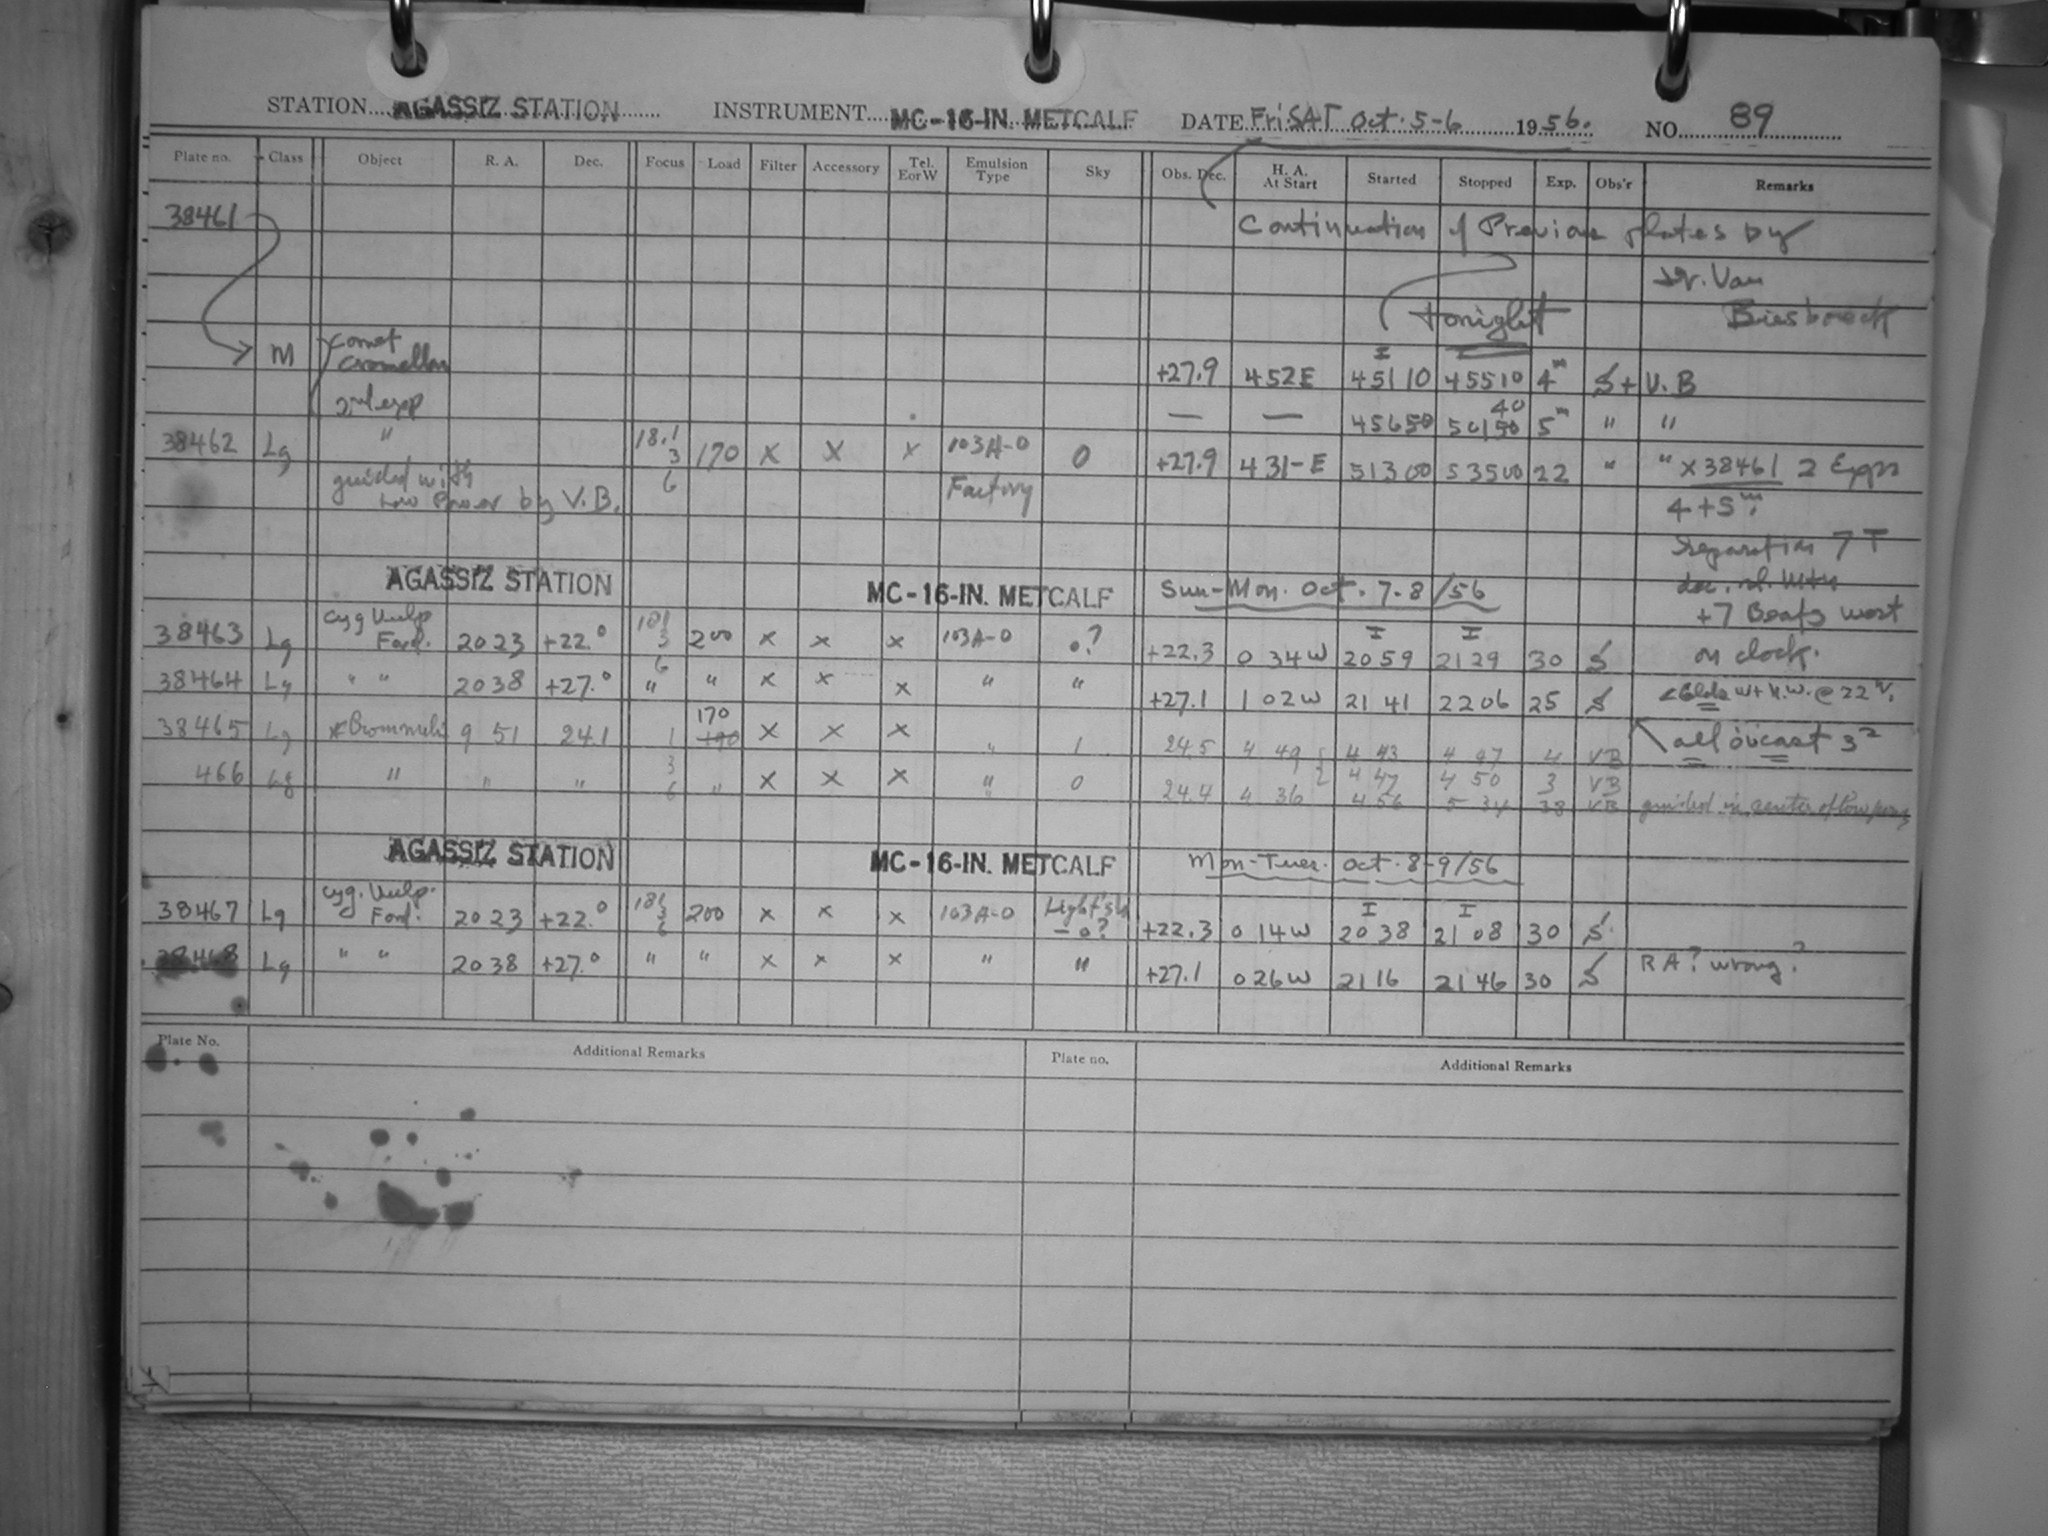 STATION AGASSIZ STATION INSTRUMENT MC-16-IN. METCALF DATE Fri SAT Oct. 5-6 1956. NO. 89
Plate no. Class Object R. A. Dec. Focus Load Filter Accessory Tel. E or W Emulsion Type Sky Obs. Dec. H. A. At Start Started Stopped Exp. Obs'r Remarks
38461 Continuation of Previous plates by
Dr. Van
Tonight Biesbroeck
M Comet
+27.9 4 52 E I 4 51 10 4 55 10 4m S + V. B
2nd exp — — 4 56 50 5 01 50 40 5m " "
38462 Lg " 18.1 3 6 170 X X X 103A-O 0 +27.9 4 31-E 5 13 00 5 35 00 22 " " X 38461 2 Exps
guided with Factory 4 + 5m.
Low Power by V. B.
Separation 7 T
AGASSIZ STATION MC-16-IN. METCALF Sun-Mon. Oct. 7-8/56
+7 Beats west
38463 Lg Cyg Vulp 20 23 +22.° 181 3 6 200 X X X 103A-O 0? +22.3 0 34 W I 20 59 I 21 29 30 S on clock.
38464 Lg " " 20 38 +27.° " " X X X " " +27.1 1 02 W 21 41 22 06 25 S
38465 Lg 9 51 24.1 1 170 X X X " 1 24.5 4 49 1 4 43 4 47 4 VB all ovcast 3²
3 2 4 47 4 50 3 VB
466 Lg " " " 6 " X X X " 0 24.4 4 36 4 56 5 34 38 VB guided in center of low power
AGASSIZ STATION MC-16-IN. METCALF Mon-Tues. Oct. 8-9/56
38467 Lg Cyg. Vulp. 20 23 +22.° 181 3 6 200 X X X 103A-O - 0? +22.3 0 14 W I 20 38 I 21 08 30 S
38468 Lg " " 20 38 +27.° " " X X X " " +27.1 0 26 W 21 16 21 46 30 S RA? wrong?
Plate No. Additional Remarks Plate no. Additional Remarks